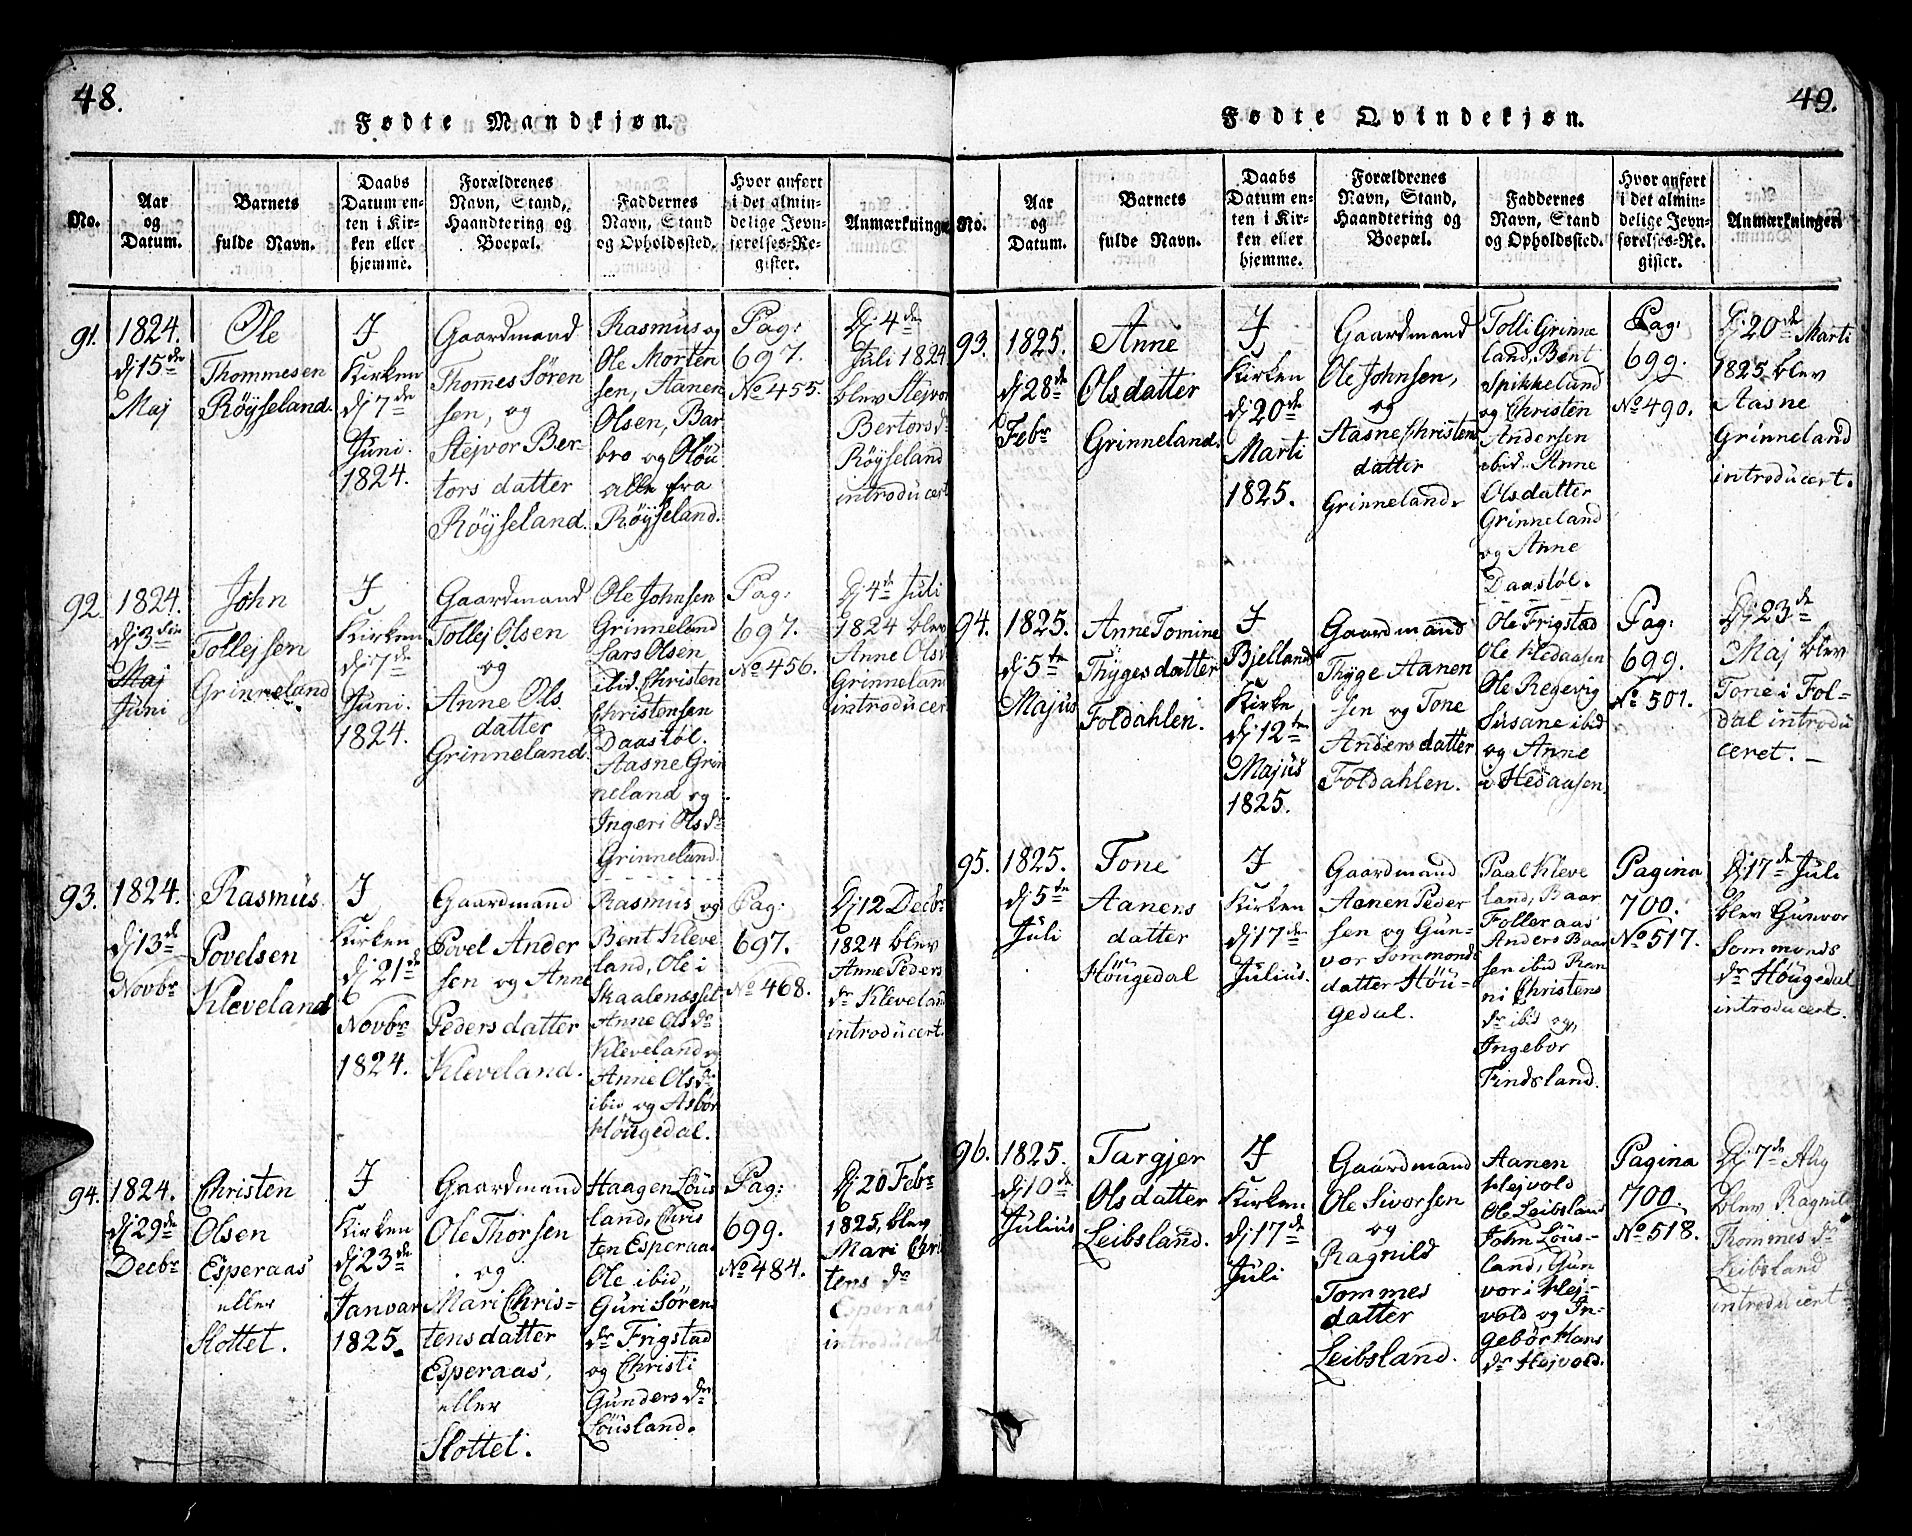 48.
Fødte Mandkjøn.
No.
Aar
og
Datum.
Barnets
fulde Navn.
Daabs
Datum en-
ten i Kir-
ken eller
hjemme.
Forældrenes
Navn, Stand,
Haandtering og
Boepæl.
Faddernes
Navn, Stand
og Opholdssted.
Hvor anført
i det almin-
delige Jevn-
førelses-Re-
gister.
Anmærkninger
91.
1824.
Dj 15de
Maj
Ole
Thommesen
Röysseland.
I
Kirken
dj 7de
Juni.
1824.
Gaardmand
Thomes Sören
sen, og
Stejvor Ber-
tors datter
Röysseland.
Rasmus og
Ole Morten
sen, Aanen
Olsen, Bar
bro og Höu
alle fra
Röysseland.
Pag:
697.
No 455.
Dj 4de
Juli 1824
blev Stejvor
Bertorsd
Röysseland
introducert
92.
1824.
Dj 3die
Maj
Juni
John
Tollejsen
Grinneland
I
Kirken
dj 7de
Juni.
1824.
Gaardmand
Tollej Olsen
og
Anne Ols
datter
Grinneland.
Ole Johnsen
Grinneland
Lars Olsen
ibid. Christen
Christensen
Daastöl.
Aasne Grin
neland og
Ingeri Ols dr
Grinneland.
Pag:
697.
No 456.
Dj 4de Juli
1824 blev
Anne Olsd
Grinnelan
introducer
93.
1824.
dj 13de
Novbr
Rasmus
Povelsen
Kleveland
I
Kirken
dj 21de
Novbr
1824.
Gaardmand
Povel Ander
sen og Anne
Peders datter
Kleveland.
Rasmus og
Bent Kleve
land, Ole i
Skaalenæsset
Anne Ols dr
Kleveland og
Anne Olsd.
ibid og Asbör
Höugedal.
Pag:
697.
No 468.
Dj 12 Decbr
1824 blev
Anne Peders
dr Kleveland
introducert.
94.
1824.
dj 29de
Decbr
Christen
Olsen
Esperaas
eller
Slottet.
I
Kirken
dj 23de
Janvar
1825.
Gaardmand
Ole Thorsen
og
Mari Chris-
tens datter
Esperaas,
eller
Slottet.
Haagen Löus
land, Chris
ten Esperaas
Ole ibid,
Guri Sörens
dr Frigstad
og Christi
Gunders dr
Löusland.
Pag:
699.
No 484.
Dj 20 Febr
1825, blev
Mari Chri
tens dr
Esperaas
introducert
49.
Fødte Qvindekjøn.
No.
Aar
og
Datum.
Barnets
fulde Navn.
Daabs
Datum en-
ten i Kir-
ken eller
hjemme.
Forældrenes
Navn, Stand,
Haandtering og
Boepæl.
Faddernes
Navn, Stand
og Opholdssted.
Hvor anført
i det almin-
delige Jevn-
førelses-Re-
gister.
Anmærkninger
93.
1825.
dj 28de
Febr
Anne
Olsdatter
Grinneland.
I
Kirken
dj 20de
Marti
1825.
Gaardmand
Ole Johnsen,
og
Aasne Christen
datter
Grinneland.
Tolli Grinne
land, Bent
Spikkeland
og Christen
Andersen
ibid. Anne
Olsdatter
Grinneland
og Anne
Daastöl.
Pag:
699.
No 490.
Dj 20de Marti
1825 blev
Aasne
Grinneland
introducert.
94.
1825.
dj 5te
Majus
Anne Tomine
Thyges datter
Foldahlen.
I
Bjelland
Kirke
dj 12te
Majus
1825.
Gaardmand
Thyge Aanen
sen og Tone
Anders datter
Foldahlen.
Ole Frigstad
Ole Hedaasen
Ole Regevig
Susane ibid
og Anne
i Hedaasen.
Pag:
699.
No 501.
Dj 23de
Maj blev
Tone i Fol-
dal introdu
ceret.
95.
1825.
dj 5te
Juli
Tone
Aanens
datter
Höugedal
I
Kirken
dj 17de
Julius.
Gaardmand
Aanen Peder
sen og Gun-
vor Sommonds
datter Höu-
gedal.
Paal Kleve
land, Baar
Folleraas
Anders Baar
sen ibid Ran
ni Christens
dr ibid og,
Ingebor
Findsland.
Pagina
700.
No 517.
Dj 17de Juli
blev Gunvor
Sommonds
dr Höugedal
introducert.
96.
1825.
dj 10de
Julius
Targjer
Ols datter
Leibsland.
I
Kirken
dj 17de
Juli
Gaardmand
Ole Sivorsen
og
Ragnild
Tommes
datter
Leibsland.
Aanen
Hejvold
Ole Leibsland
John Löus-
land, Gun
vor i Hej-
vold og In-
gebör Hans
dr Hejvold.
Pagina
700.
No 518.
Dj 7de Aug
blev Ragnild
Thommes dr
Leibsland
introducert